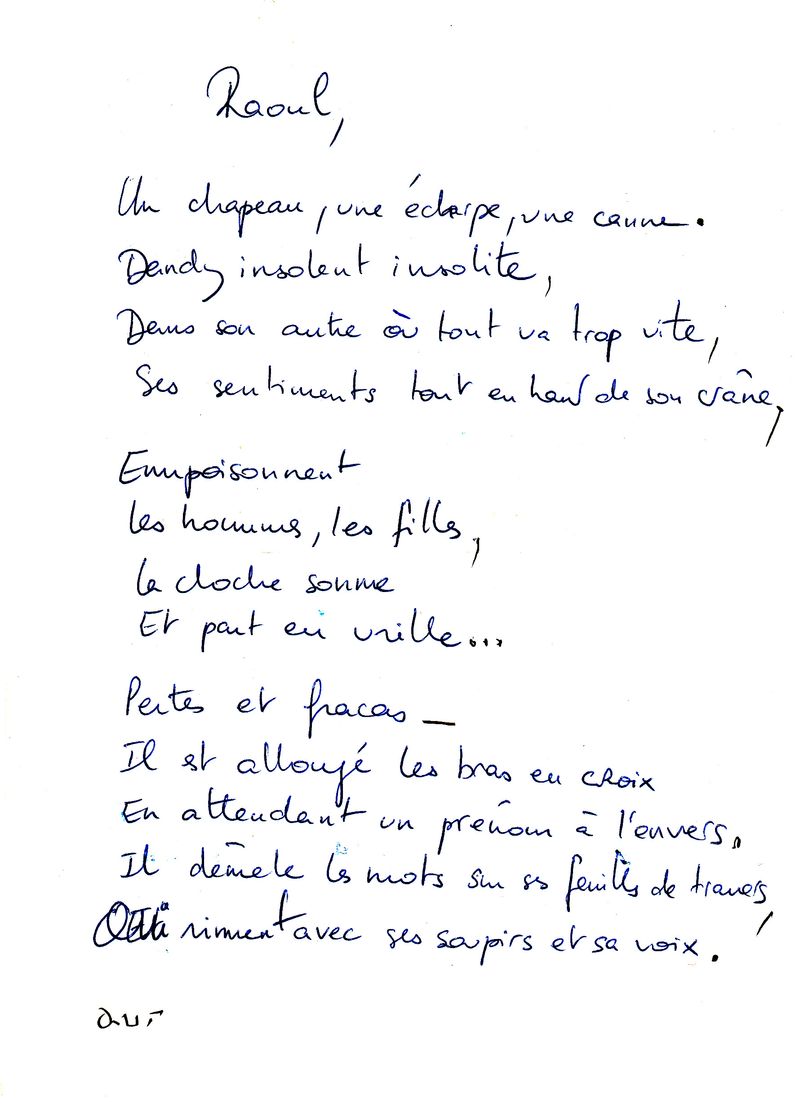 Raoul,
Un chapeau, une écharpe, une canne.
Dandy insolent insolite,
Dans son antre où tout va trop vite,
Ses sentiments tout en haut de son crâne,
Empoisonnent
les hommes, les filles,
la cloche sonne
Et part en vrille...
Pertes et fracas _
Il est allongé les bras en croix
En attendant un prénom à l'envers.
Il démêle les mots sur ses feuilles de travers,
riment avec ses soupirs et sa voix.